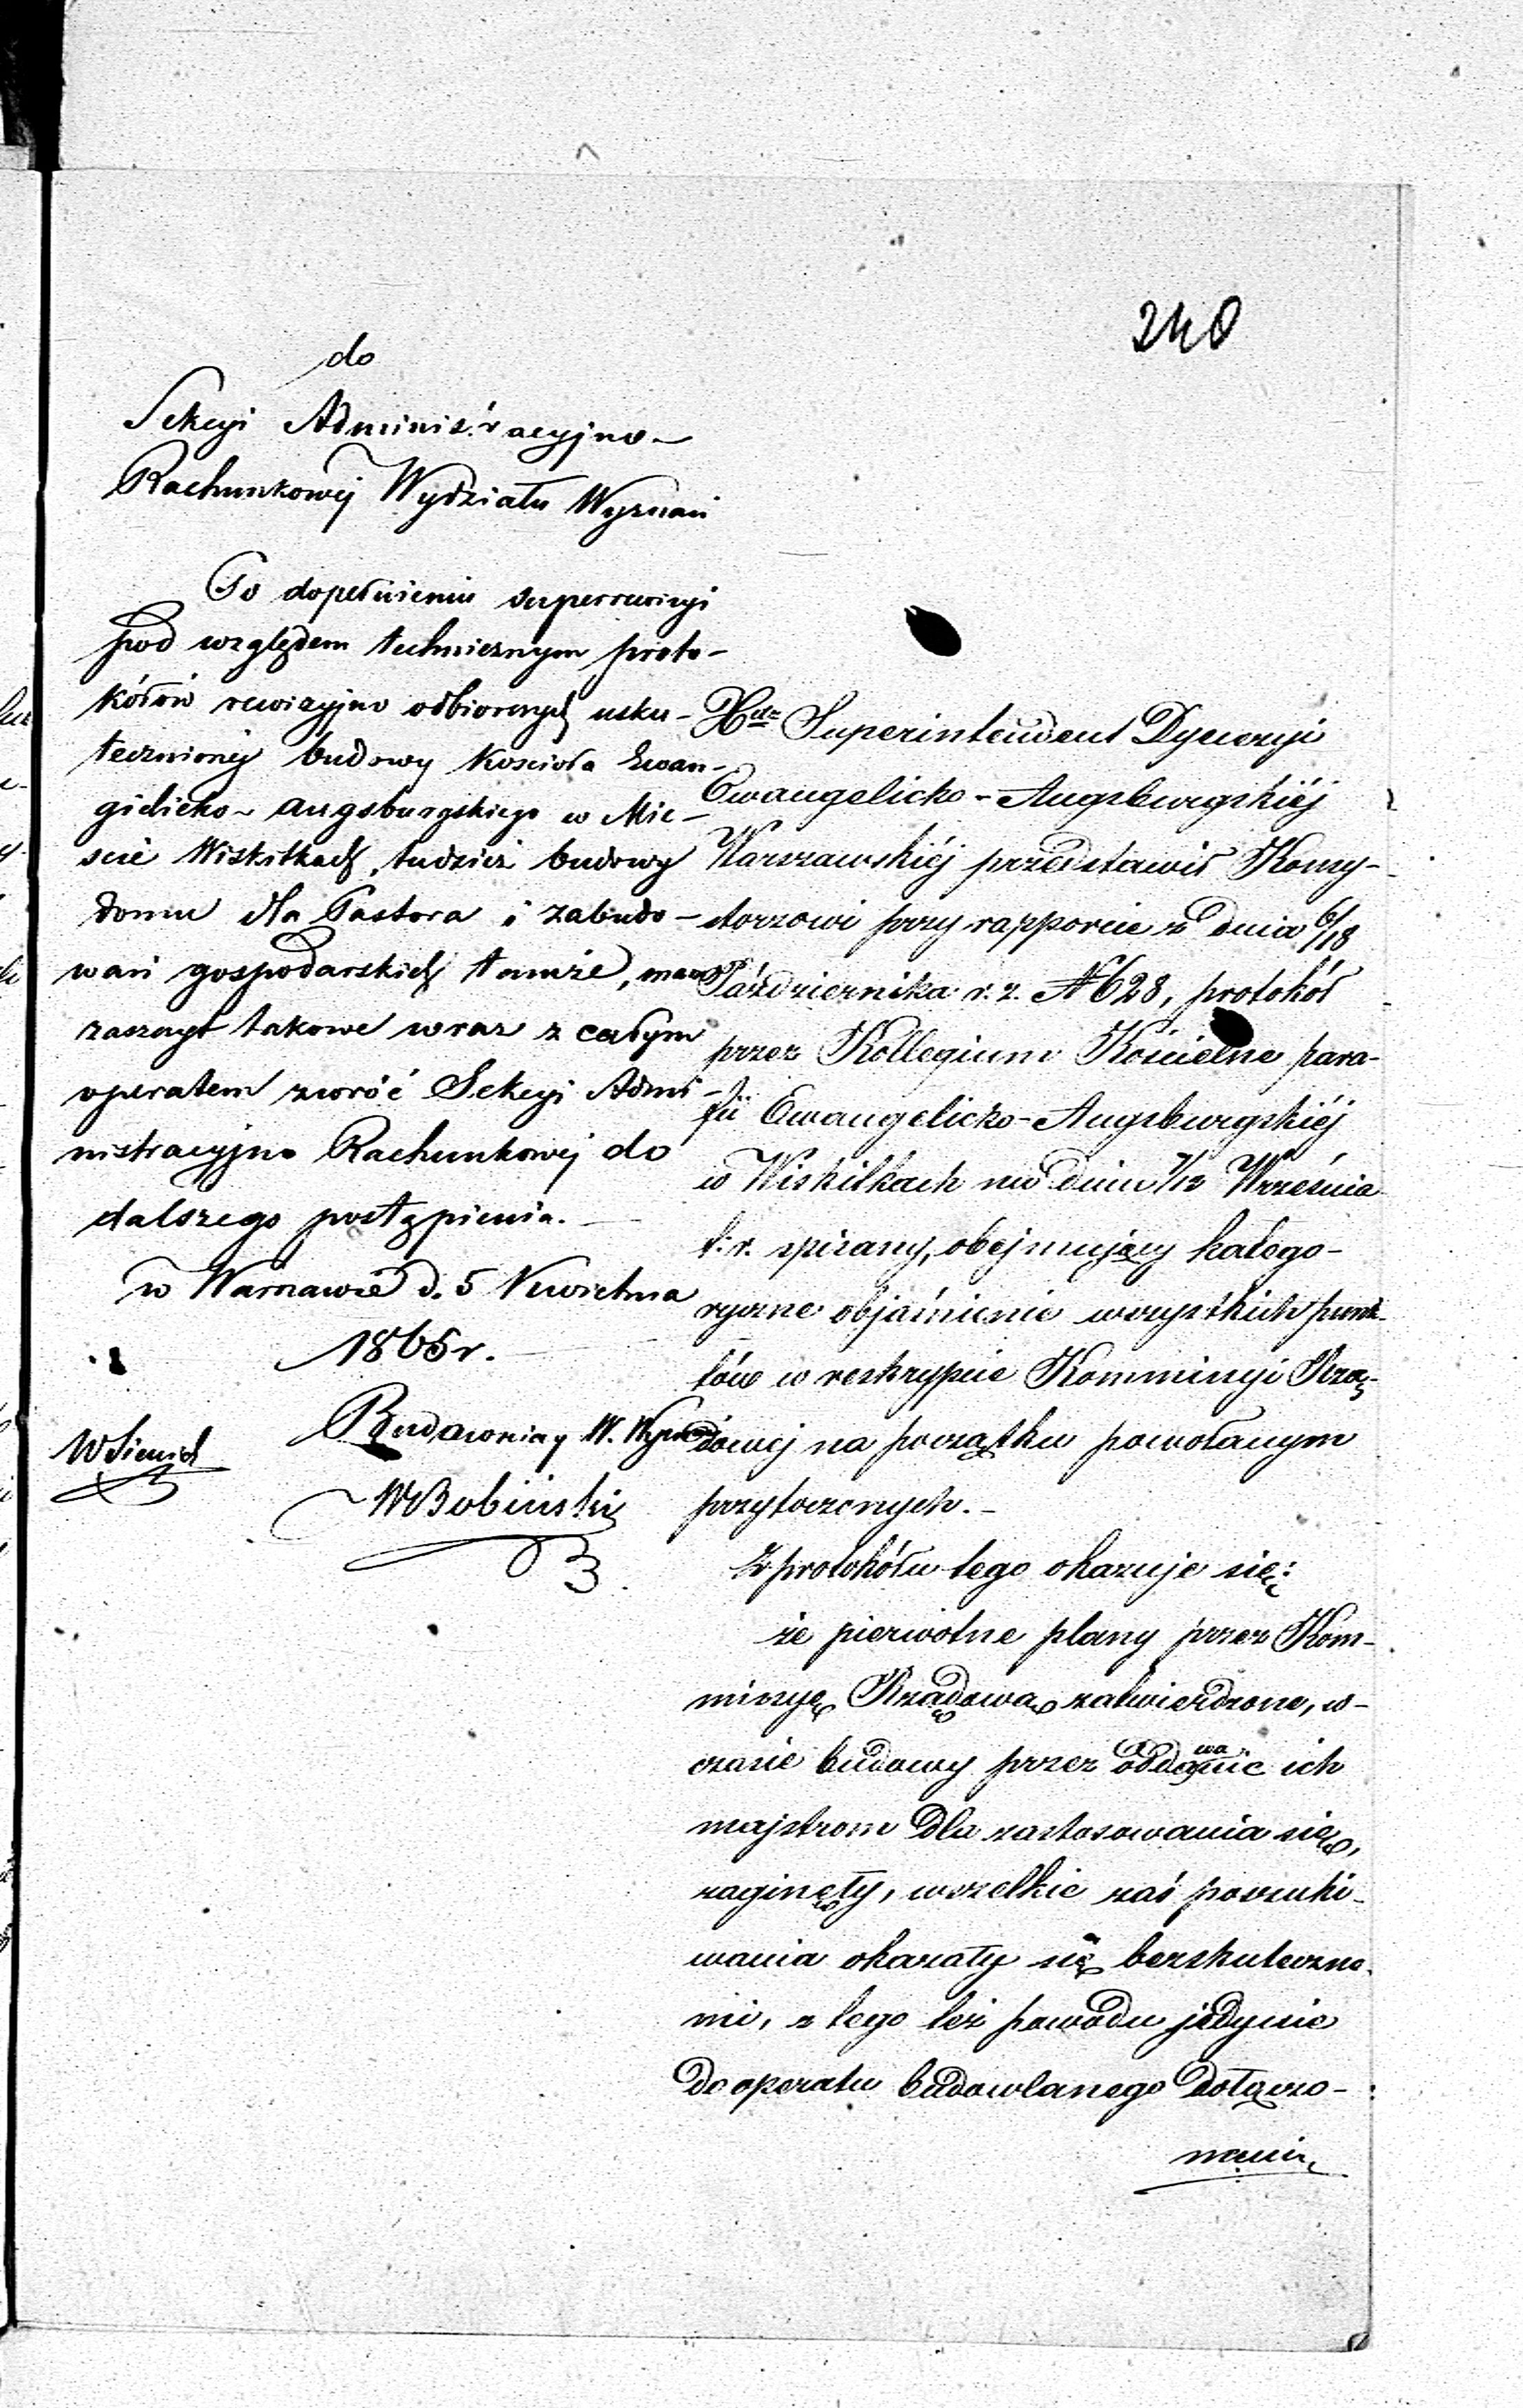 240
do
Sekcyi Administracyjno-
Rachunkowej Wydziału Wyznań
Po dopełnieniu superrewizyi
pod względem technicznym proto-
kółów rewizyjno odbiorczych usku-
tecznionéj budowy Kościoła Ewan-
gielicko-augsburgskiego w Mie-
scie Wiskitkach, tudzież budowy
domu dla Pastora i zabudo-
wań gospodarskich tamże, mam
zaszczyt takowe wraz z całym
operatem zwróć Sekcyi Admi-
nistracyjno Rachunkowej do
dalszego postąpienia.
w Warszawie d. 5 Kwietnia
1865 r.
Budowniczy W. Wyznań
WBobiński
Superintendent Dyecezyi
Ewangelicko-Augsburgskiéj
Warszawskiéj przedstawił Konsy-
storzowi przy rapporcie z dnia 6/18
Października r. z. N 628, protokół
przez Kollegium Kościelne para-
fii Ewangelicko-Augsburgskiéj
w Wiskitkach na dniu Września
t. r. spisany, obejmujący katego-
ryczne objaśnienie wszystkich punk-
tów w reskrypcie Kommissyi Rzą-
dowej na początku powołanym
przytoczonych.-
Z protokółu tego okazuje się:
że pierwotne plany przez Kom-
missyę Rządową zatwierdzone, w-
czasie budowy przez oddawanie ich
majstrom dla zastosowania się,
zaginęły, wszelkie zaś poszuki-
wania okazały się bezskuteczne-
mi, z tego też powodu jedynie
do operatu budowlanego dołączo-
nemi